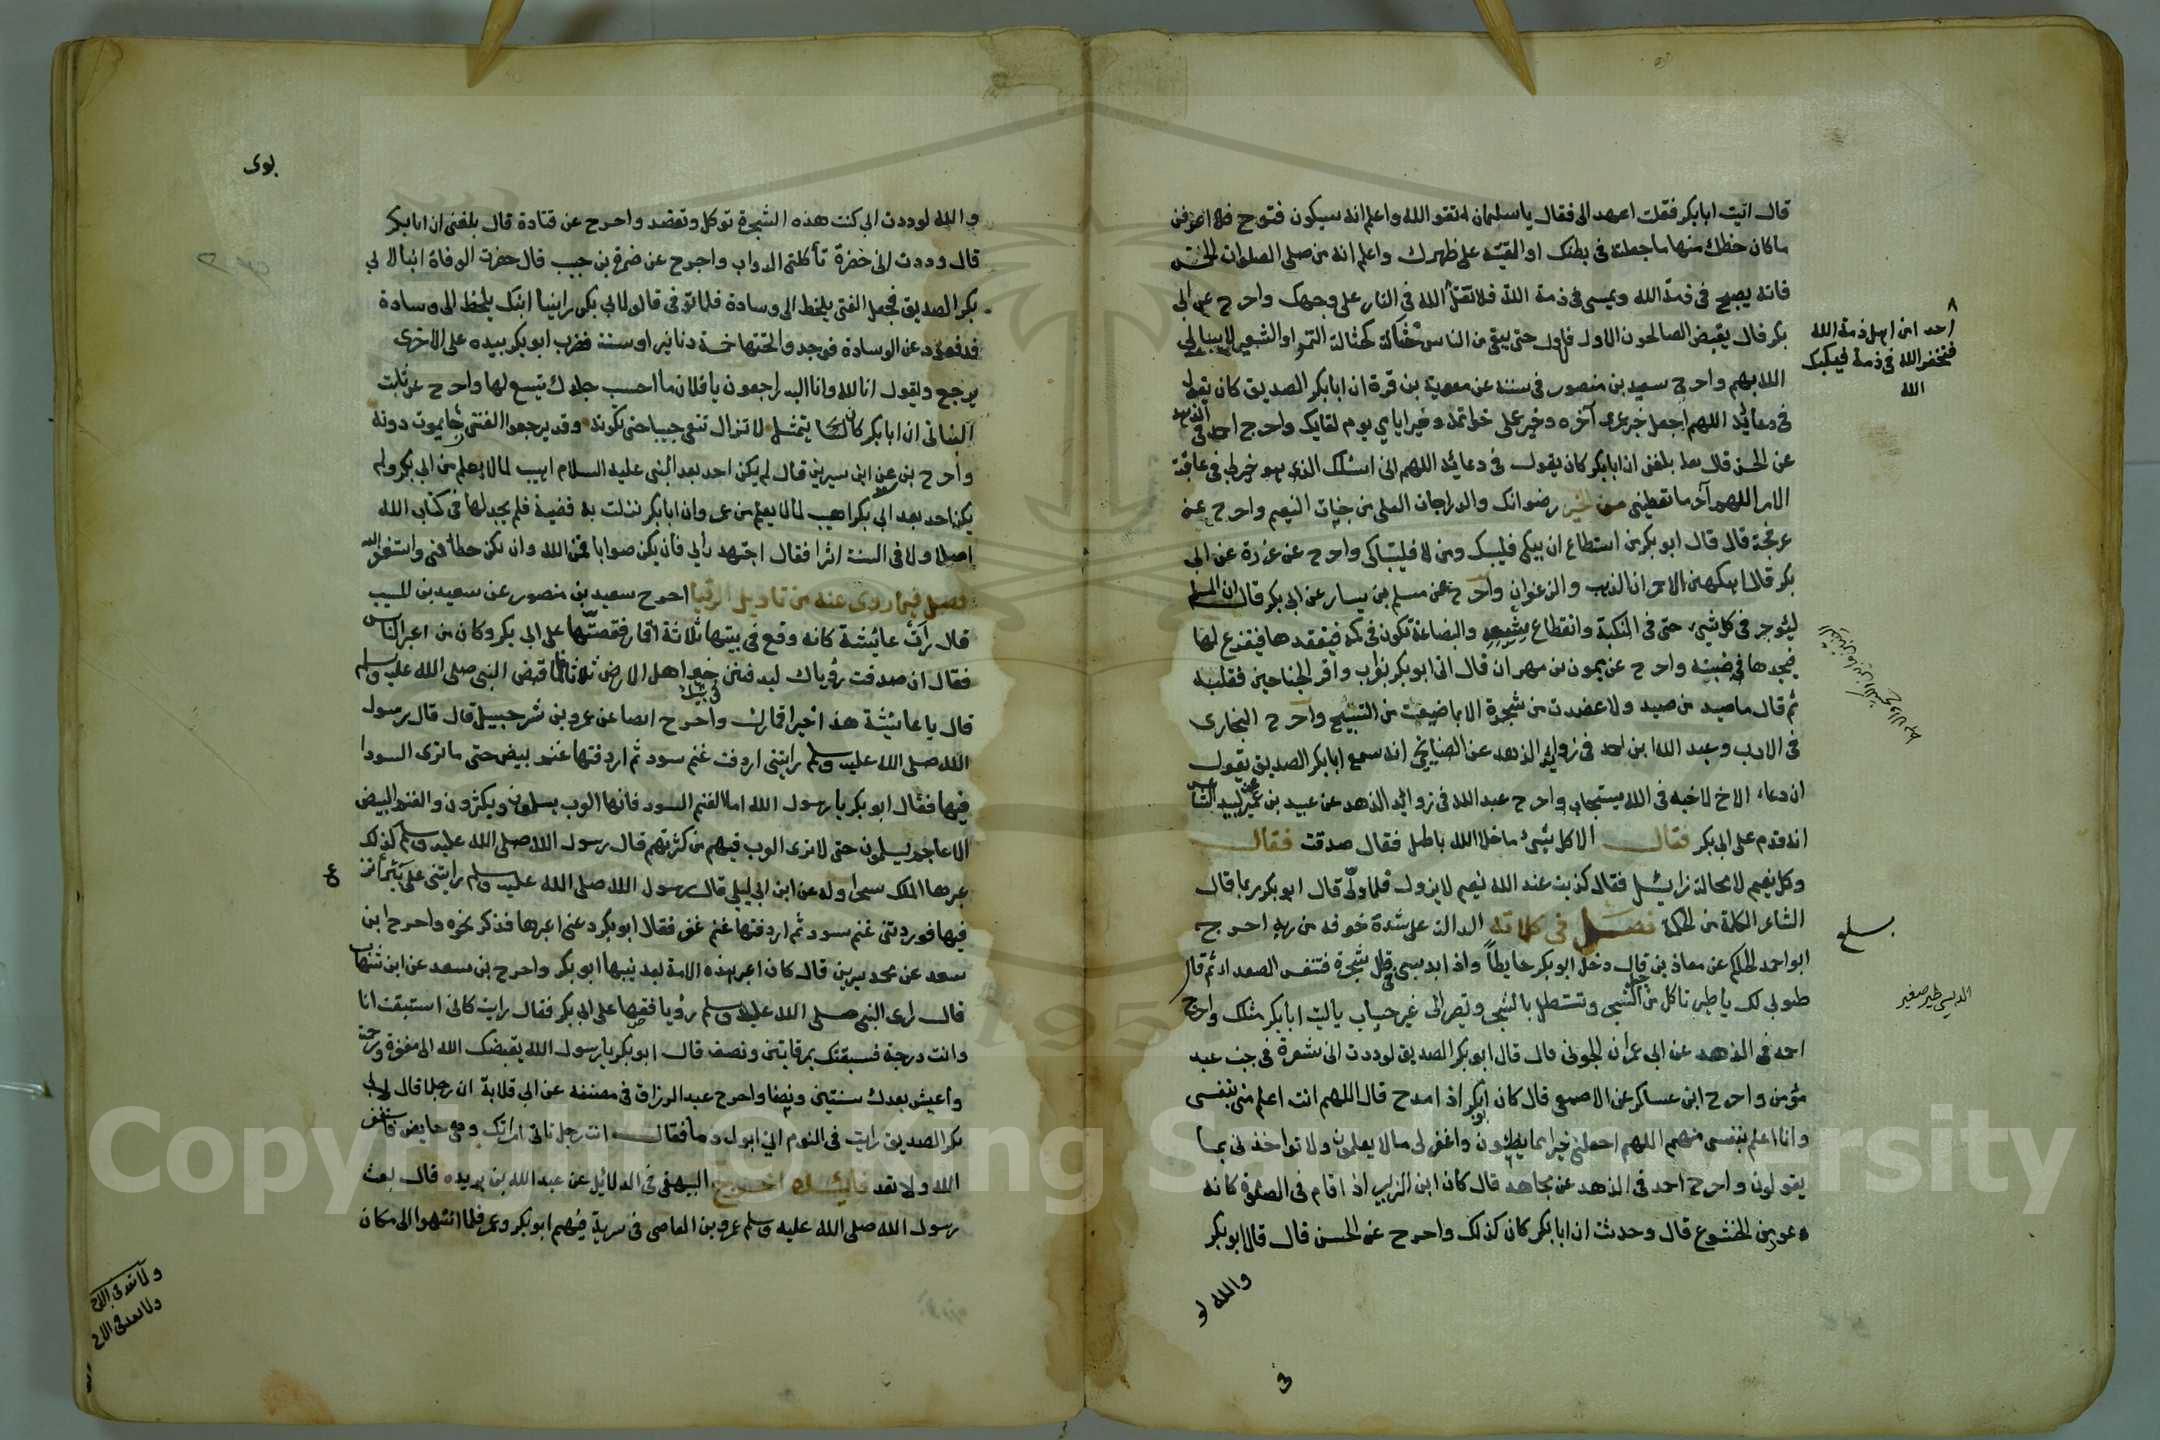 قال اتيت ابابكر فقلت اعهد الى فقال يا سلمان اتقو الله واعلم انه سيكون فتوح فلا اعرفن
ما كان حظك منها ما جعلته فى بطنك او القيته على ظهرك واعلم انه من صلى الصلوات الخمس
فانه يصبح فى ذمة الله ويمسى فى ذمة الله فلا تقتل الله فى النار على وجهك واحرج عن ابى
بكر قال يقبض الصالحون الاول فاول حتى يبقى من الناس حثالة كحثالة التمر او الشعير لا يبالى
الله بهم واحرج سعيد بن منصور فى سننه عن معوية بن قرة ان ابابكر الصديق كان يقول
فى دعائه اللهم اجعل خير عمرى آخره وخير على خواتمه وخير ايامي يوم لقايك واحرج احمد فى الزهد
عن الحسن قال بلغنى ان ابابكر كان يقول فى دعائه اللهم انى اسئلك الذى هو خير لى فى عاقبة
الامر اللهم آخر ما تعطينى من الخير رضوانك والدراجات العلى من جنات النعيم واحرج عن
عرفجة قال قال ابو بكر من استطاع ان يبكى فليبك ومن لا فليتباكى واحرج عن عزرة عن ابى
بكر قال اهلكهن الاحمران الذهب والزعفران واحرج عن مسلم بن يسار عن ابى بكر قال ان المسلم
ليوجر فى كل شىء حتى فى النكبة وانقطاع شسعه والبضاعة تكون فى كمه فيفقدها فيفزع لها
فيجدها فى ضبنه واحرج عن ميمون بن مهران قال اتى ابو بكر بغراب وافر الجناحين فقلبه
ثم قال ما صيد من صيد ولا عضدت من شجرة الا بما ضيعت من التسبيح واحرج البخارى
فى الادب وعبد الله ابن احمد فى زوائد الزهد عن الصنابحى انه سمع ابابكر الصديق يقول
ان دعاء الاخ لاخيه فى الله يستجاب واحرج عبد الله فى زوائد الزهد عن عبيد بن عمير عن لبيد الشاعر
انه قدم على ابى بكر فقال الا كل شىء ما خلا الله باطل فقال صدقت فقال
وكل نعيم لا محالة زائل فقال كذبت عند الله نعيم لا يزول فلما ولّى قال ابو بكر ربما قال
الشاعر الكلمة من الحكمة فصل فى كلماته الدالة على شدة خوفه من ربه احرج
ابو احمد الحاكم عن معاذ بن جبل قال دخل ابو بكر حايطاً واذا بدبسى فى ظل شجرة فتنفس الصعداء ثم قال
طوبى لك يا طير تاكل من الشجر وتستظل بالشجر وتصير الى غير حساب يا ليت ابابكر مثلك واحرج
احمد فى الزهد عن ابى عمران الجونى قال قال ابو بكر الصديق لوددت انى شعرة فى جنب عبد
مؤمن واحرج ابن عساكر عن الاصمعى قال كان ابو بكر اذا مدح قال اللهم انت اعلم منى بنفسى
وانا اعلم بنفسى منهم اللهم اجعلنى خيرا مما يظنون واغفر لى ما لا يعلمون ولا تواخذنى بما
يقولون واحرج احمد فى الزهد عن مجاهد قال كان ابن الزبير اذا قام فى الصلوة كانه
عود من الخشوع قال وحدثت ان ابابكر كان كذلك واحرج عن الحسن قال قال ابو بكر
والله لو
احدا من اهل ذمة الله
فتخفر الله فى ذمة فيكبك
الله
الدبسى طير صغير
والله لوددت انى كنت هذه الشجرة توكل وتعضد واحرج عن قتادة قال بلغنى ان ابابكر
قال وددت انى خضرة تأكلنى الدواب واحرج عن ضمرة بن حبيب قال حضرت الوفاة ابنا لابى
بكر الصديق فجعل الفتى يلحظ الى وسادة فلما توفى قالوا لابى بكر راينا ابنك يلحظ الى وسادة
فدفعوه عن الوسادة فوجدوا تحتها خمسة دنانير او ستة فضرب ابو بكر بيده على الاخرى
يرجع ويقول انا لله وانا اليه راجعون يا فلان ما احسب جلدك يتسع لها واحرج عن ثابت
البنانى ان ابابكر كان يتمثل لا تزال تنعى حبيبا حتى تكونه وقد يرجو الفتى الرجا يموت دونه
واحرج بن عن ابن سيرين قال لم يكن احد بعد النبى عليه السلام اهيب لما لا يعلم من ابى بكر ولم
يكن احد بعد ابى بكر اهيب لما لا يعلم من عمر وان ابابكر نزلت به قضية فلم يجد لها فى كتاب الله
اصلا ولا فى السنة اثرا فقال اجتهد رأى فان يكن صوابا فمن الله وان يكن خطأ فمنى واستغفر الله
فصل فيما روى عنه من تاويل الرؤيا احرج سعيد بن منصور عن سعيد بن المسيب
قال رأت عائيشة كانه وقع فى بيتها ثلاثة اقمار فقصتها على ابى بكر وكان من اعبر الناس
فقال ان صدقت رؤياك ليدفنن خير اهل الارض ثلاثا فلما قبض النبى صلى الله عليه وسلم
قال يا عائيشة هذا خير اقمارك واحرج ايضا عن عمرو بن شرحبيل قال قال رسول
الله صلى الله عليه وسلم رايتنى اردفت غنم سود ثم اردفتها غنم بيض حتى ما ترى السودا
فيها فقال ابو بكر يا رسول الله اما الغنم السود فانها العرب يسلمون ويكثرون والغنم البيض
الاعاجم يسلمون حتى لا ترى العرب فيهم من كثرتهم قال رسول الله صلى الله عليه وسلم كذلك
عبرها الملك سحرا وله عن ابن ابى ليلى قال رسول الله صلى الله عليه وسلم رايتنى على بئر انزع
فيها فوردتنى غنم سود ثم اردفتها غنم عفر فقال ابو بكر دعنى اعبرها فذكر نحوه واحرج ابن
سعد عن محمد سيرين قال كان اعبر هذه الامة بعد نبيها ابو بكر واحرج بن سعد عن ابن شهاب
قال راى النبى صلى الله عليه وسلم رؤيا فقصها على ابى بكر فقال رايت كانى استبقت انا
وانت درجة فسبقتك بمرقاتين ونصف قال ابو بكر يا رسول الله يقبضك الله الى مغفرة ورحمة
واعيش بعدك سنتين ونصفا واحرج عبد الرزاق فى مصنفه عن ابى قلابة ان رجلا قال لابى
بكر الصديق رايت فى النوم انى ابول دما فقال انت رجل تاتى امراتك وهى حايض فاستغفر
الله ولا تعد فائدة احرج البيهقى فى الدلائل عن عبد الله بن بريده قال بعث
رسول الله صلى الله عليه وسلم عمرو بن العاصى فى سرية فيهم ابو بكر وعمر فلما انتهوا الى مكان
Copyright © King Saud University
1957